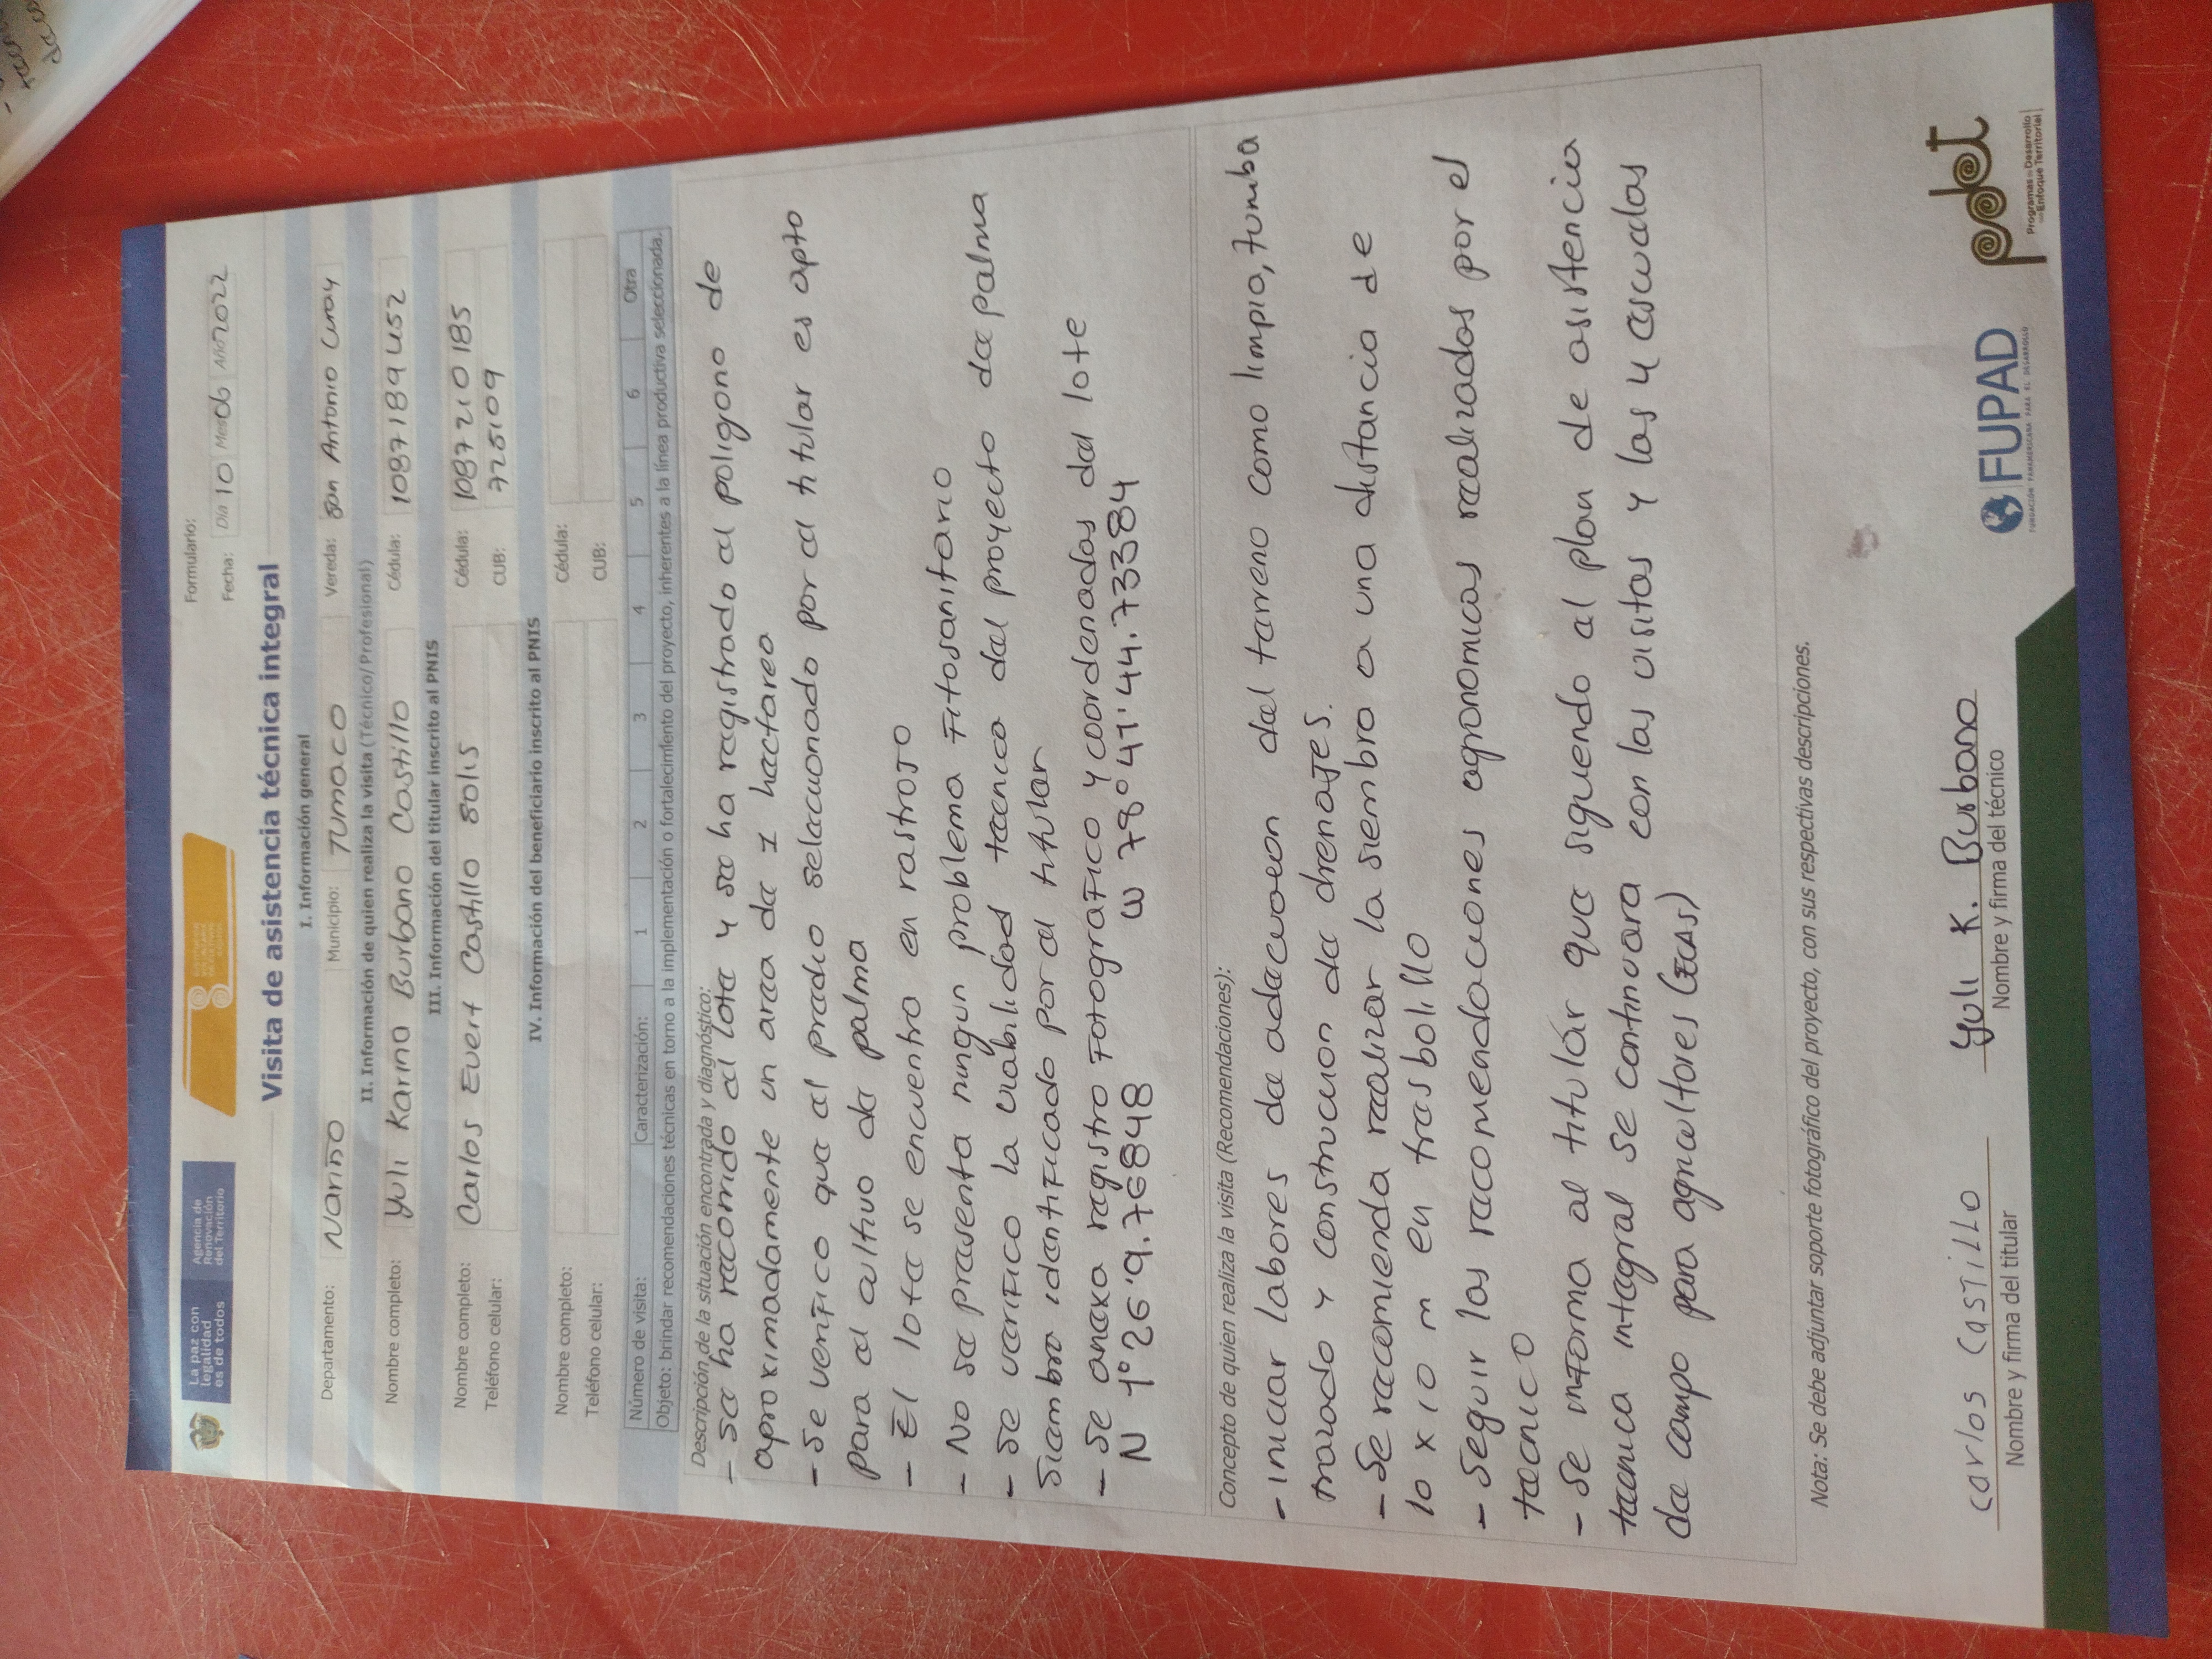 La paz con legalidad es de todos
Agencia de Renovación del Territorio
Formulario:
Fecha: Día 10 Mes 06 Año 2022
Visita de asistencia técnica integral
I. Información general
Departamento: Nariño Municipio: Tumaco Vereda: San Antonio Curay
II. Información de quien realiza la visita (Técnico/Profesional)
Nombre completo: Yuli Karina Burbano Castillo Cédula: 1087189452
III. Información del titular inscrito al PNIS
Nombre completo: Carlos Evert Castillo Solis Cédula: 1087210185
Teléfono celular: CUB: 7725109
IV. Información del beneficiario inscrito al PNIS
Nombre completo: Cédula:
Teléfono celular: CUB:
Número de visita: Caracterización: 1 2 3 4 5 6 Otra
Objeto: brindar recomendaciones técnicas en torno a la implementación o fortalecimiento del proyecto, inherentes a la línea productiva seleccionada.
Descripción de la situación encontrada y diagnóstico:
- Se ha recorrido el lote y se ha registrado el poligono de
aproximadamente un area de 1 hectarea
- Se verifico que el predio seleccionado por el titular es apto
para el cultivo de palma
- El lote se encuentra en rastrojo
- No se presenta ningun problema fitosanitario
- Se verifico la viabilidad tecnica del proyecto de palma
siembra identificado por el titular
- Se anexa registro fotografico y coordenadas del lote
N 1° 26' 9.76848 W 78° 41' 44.73384
Concepto de quien realiza la visita (Recomendaciones):
- iniciar labores de adecuacion del terreno como limpia, tumba
trazado y construcion de drenajes.
- Se recomienda realizar la siembra a una distancia de
10 x 10 m en trasbolillo
- Seguir las recomendaciones agronomicas realizados por el
tecnico
- Se informa al titular que siguendo el plan de asistencia
tecnica integral se continuara con las visitas y las 4 escuelas
de campo para agricultores (ECAS)
Nota: Se debe adjuntar soporte fotográfico del proyecto, con sus respectivas descripciones.
Carlos Castillo Yuli K. Burbano
Nombre y firma del titular Nombre y firma del técnico
FUPAD
FUNDACIÓN PANAMERICANA PARA EL DESARROLLO
pdet
Programas de Desarrollo con Enfoque Territorial